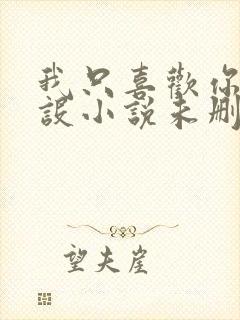 我只喜歡你
設小說未刪
望夫崖